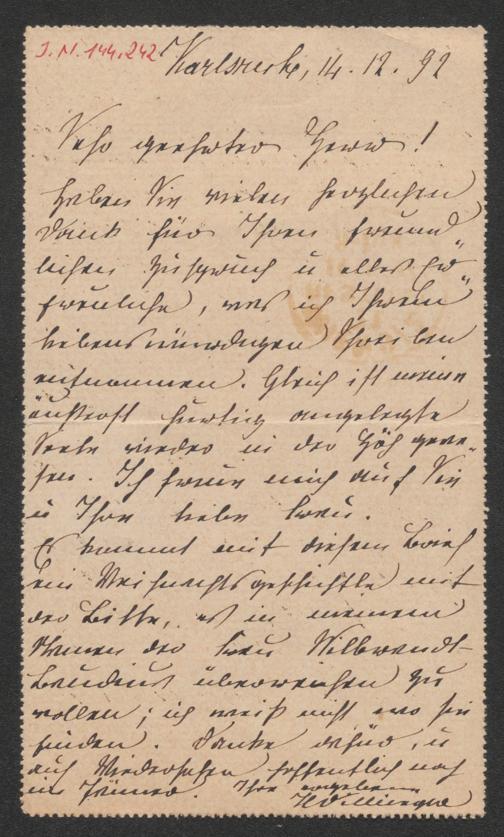 J.N. 144.242
Karlsruhe, 14. 12. 92
Sehr geehrter Herr!
Haben Sie vielen herzlichen
Dank für Ihren freund-
lichen Zuspruch u alles Er-
freuliche, was ich Ihrem
liebenswürdigen Schreiben
entnommen. Gleich ist meine
äußerst hurtig angelegte
Seele wieder in der Höh gewe-
sen. Ich freue mich auf Sie
u Ihre liebe Frau.
Es kommt mit diesem Brief
ein Weihnachtsgeschichtle mit
der Bitte, es in meinem
Namen der Frau Wilbrandt-
Baudius überreichen zu
wollen; ich weiß nicht wo sie
finden. Danke dafür, u
auf Wiedersehen hoffentlich noch
im Jänner. Ihre ergebene
HVillinger